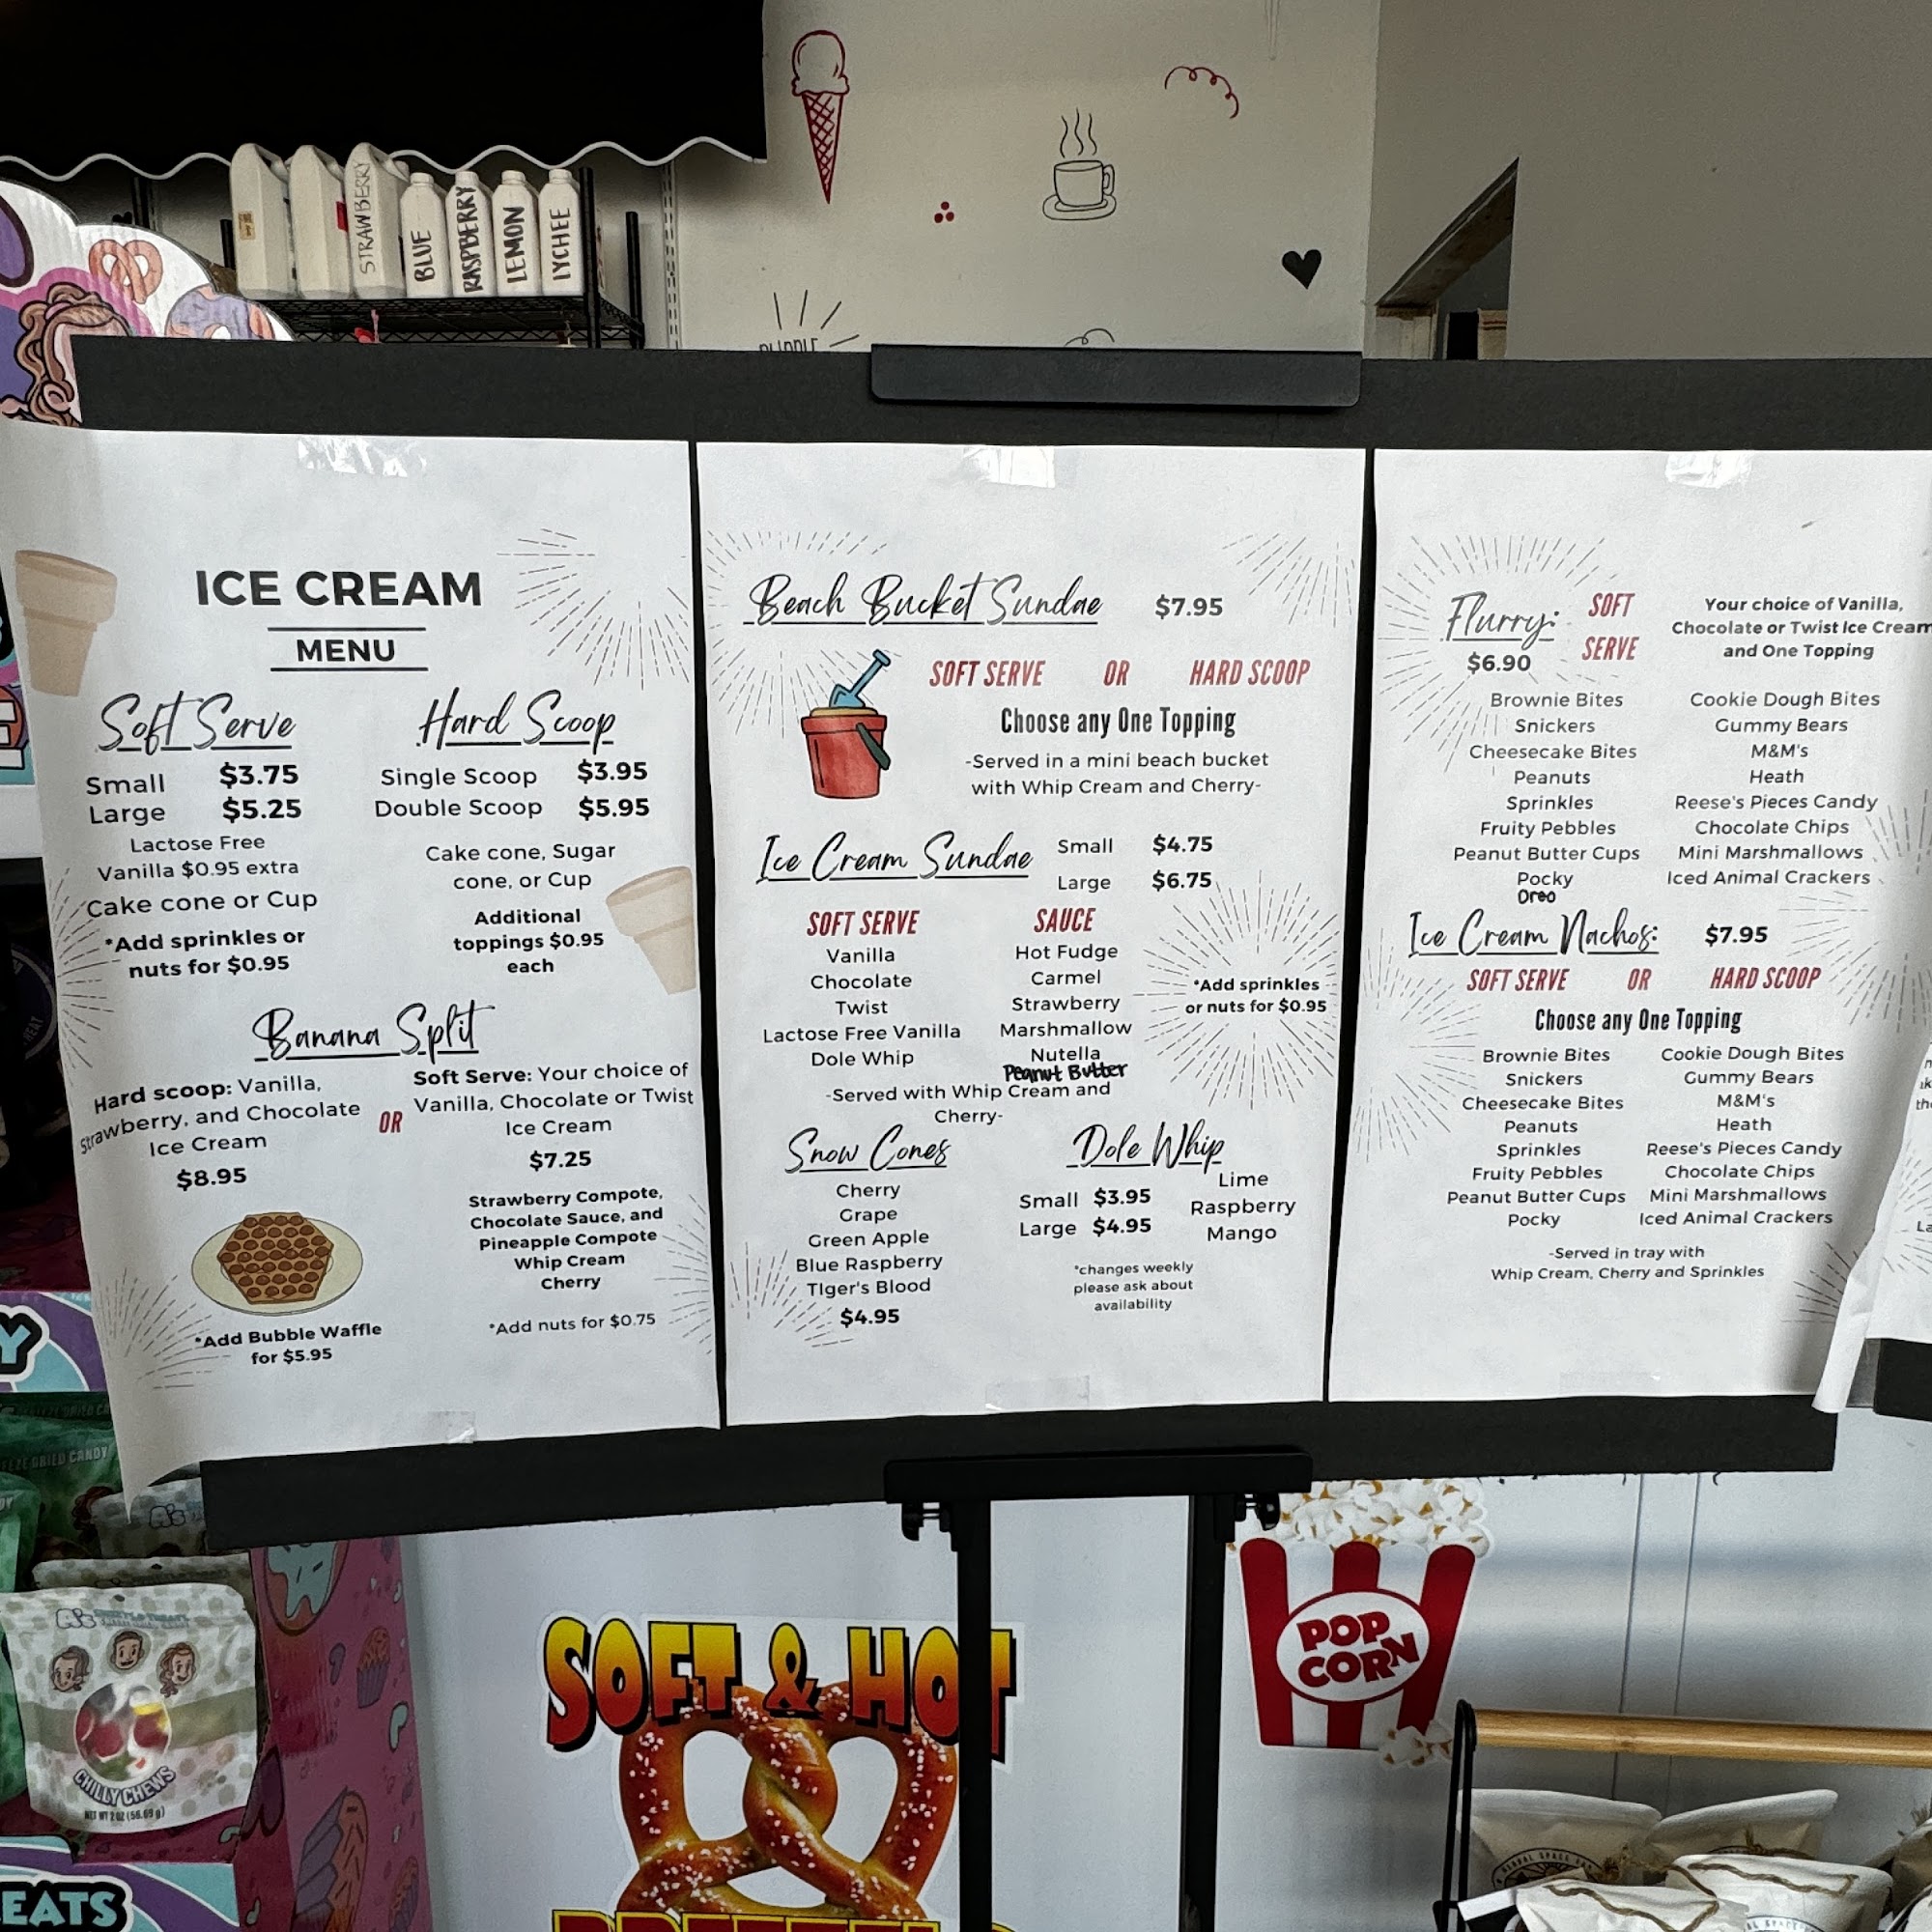 STRAWBERRY
BLUE
RASPBERRY
LEMON
LYCHEE
ICE CREAM
MENU
Soft Serve
Small $3.75
Large $5.25
Lactose Free
Vanilla $0.95 extra
Cake cone or Cup
*Add sprinkles or
nuts for $0.95
Hard Scoop
Single Scoop $3.95
Double Scoop $5.95
Cake cone, Sugar
cone, or Cup
Additional
toppings $0.95
each
Banana Split
Hard scoop: Vanilla,
Strawberry, and Chocolate
Ice Cream
$8.95
OR
Soft Serve: Your choice of
Vanilla, Chocolate or Twist
Ice Cream
$7.25
Strawberry Compote,
Chocolate Sauce, and
Pineapple Compote
Whip Cream
Cherry
*Add nuts for $0.75
*Add Bubble Waffle
for $5.95
Beach Bucket Sundae $7.95
SOFT SERVE OR HARD SCOOP
Choose any One Topping
-Served in a mini beach bucket
with Whip Cream and Cherry-
Ice Cream Sundae
Small $4.75
Large $6.75
SOFT SERVE
Vanilla
Chocolate
Twist
Lactose Free Vanilla
Dole Whip
SAUCE
Hot Fudge
Carmel
Strawberry
Marshmallow
Nutella
Peanut Butter
*Add sprinkles
or nuts for $0.95
-Served with Whip Cream and
Cherry-
Snow Cones
Cherry
Grape
Green Apple
Blue Raspberry
TIger's Blood
$4.95
Dole Whip
Small $3.95
Large $4.95
Lime
Raspberry
Mango
*changes weekly
please ask about
availability
Flurry:
$6.90
SOFT
SERVE
Your choice of Vanilla,
Chocolate or Twist Ice Cream
and One Topping
Brownie Bites
Snickers
Cheesecake Bites
Peanuts
Sprinkles
Fruity Pebbles
Peanut Butter Cups
Pocky
Oreo
Cookie Dough Bites
Gummy Bears
M&M's
Heath
Reese's Pieces Candy
Chocolate Chips
Mini Marshmallows
Iced Animal Crackers
Ice Cream Nachos: $7.95
SOFT SERVE OR HARD SCOOP
Choose any One Topping
Brownie Bites
Snickers
Cheesecake Bites
Peanuts
Sprinkles
Fruity Pebbles
Peanut Butter Cups
Pocky
Cookie Dough Bites
Gummy Bears
M&M's
Heath
Reese's Pieces Candy
Chocolate Chips
Mini Marshmallows
Iced Animal Crackers
-Served in tray with
Whip Cream, Cherry and Sprinkles
A's
CHILLY CHEWS
NET WT 2 OZ (56.69 g)
SOFT & HOT
POP
CORN